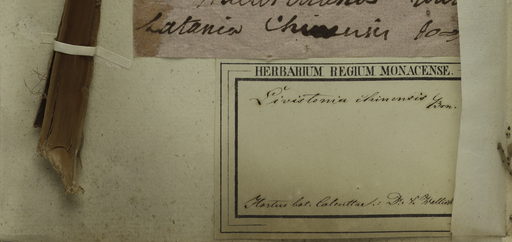 Latania Chinensis
HERBARIUM REGIUM MONACENSE.
Livistonia chinensis
Hortus bot. Calcutta: Dr.